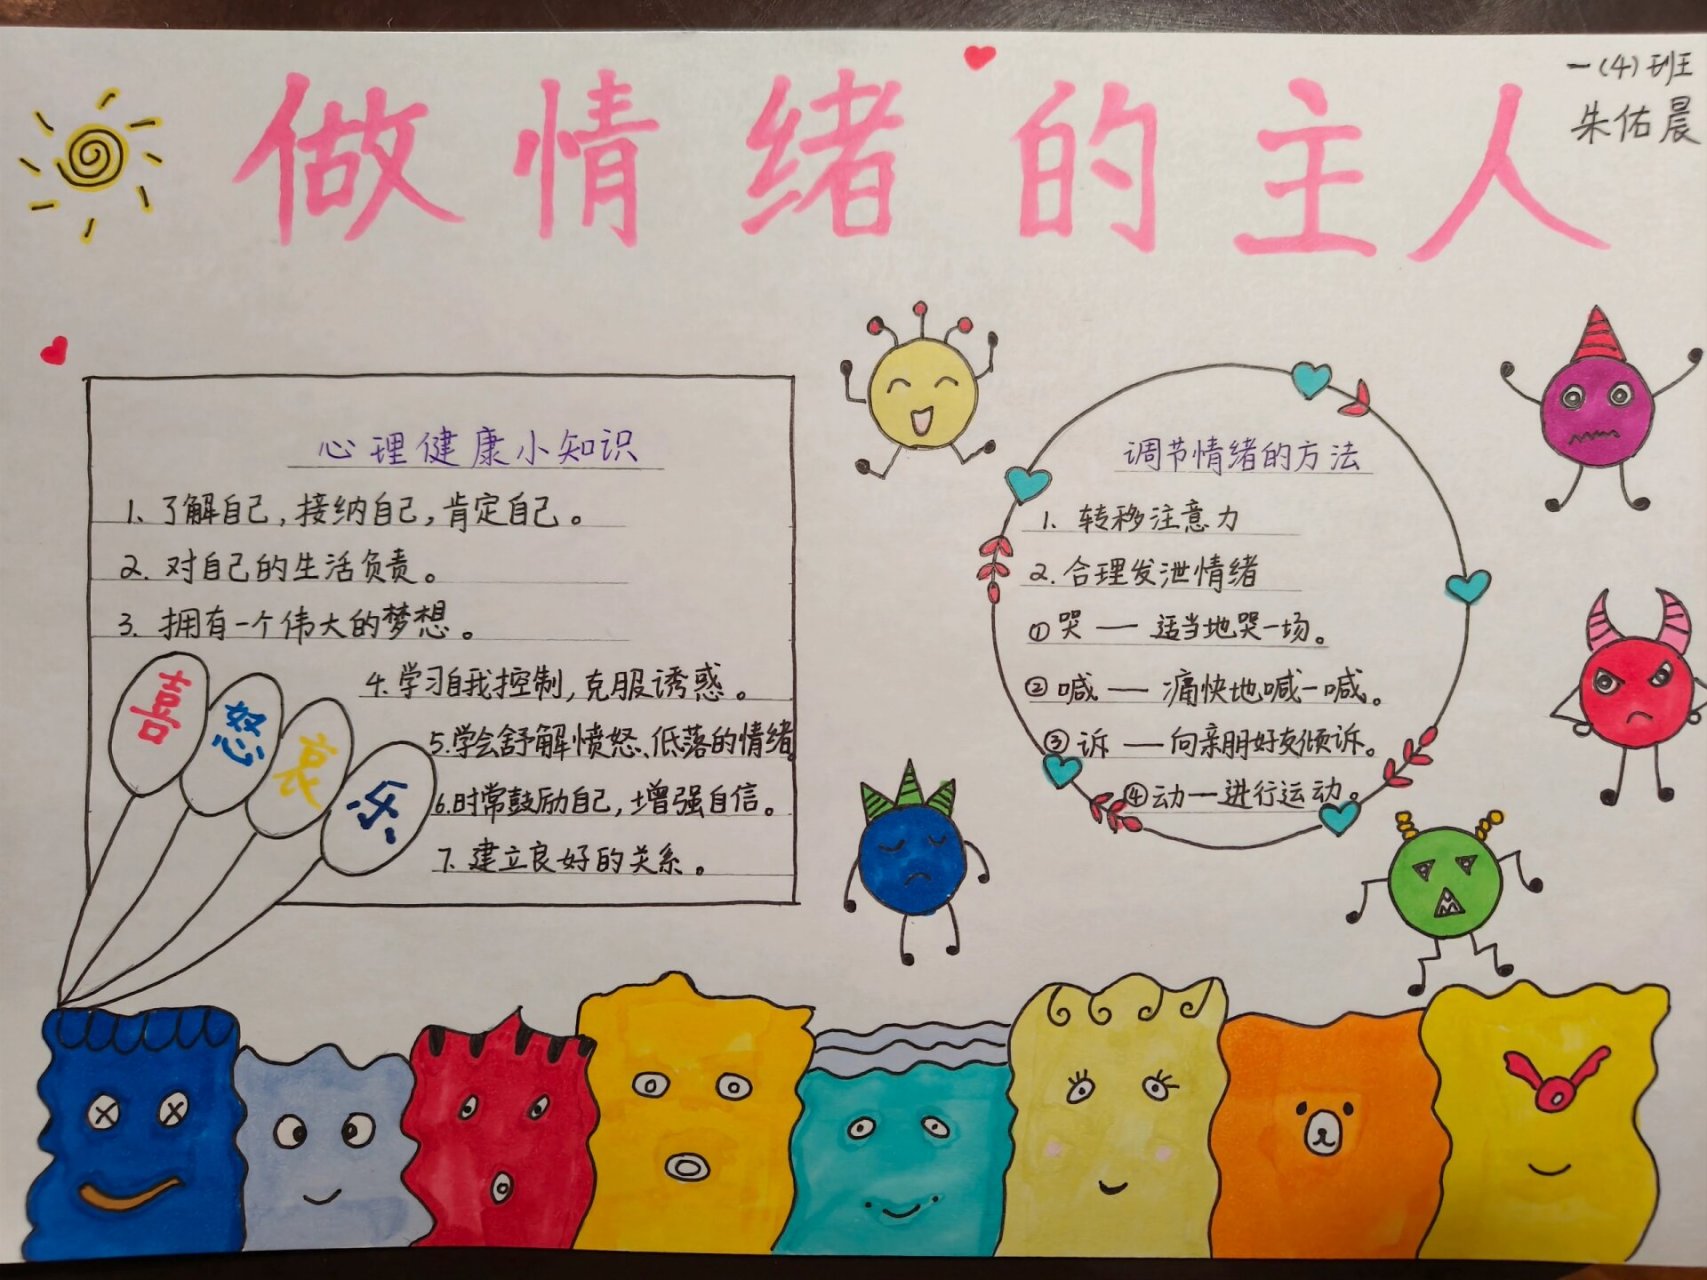 做情绪的主人
一(4)班
朱佑晨
心理健康小知识
1、了解自己,接纳自己,肯定自己。
2. 对自己的生活负责。
3. 拥有一个伟大的梦想。
4.学习自我控制,克服诱惑。
5.学会舒解愤怒、低落的情绪
6.时常鼓励自己,增强自信。
7. 建立良好的关系。
喜
怒
哀
乐
调节情绪的方法
1、转移注意力
2. 合理发泄情绪
①哭 — 适当地哭一场。
②喊 — 痛快地喊一喊。
③诉 — 向亲朋好友倾诉。
④动 — 进行运动。